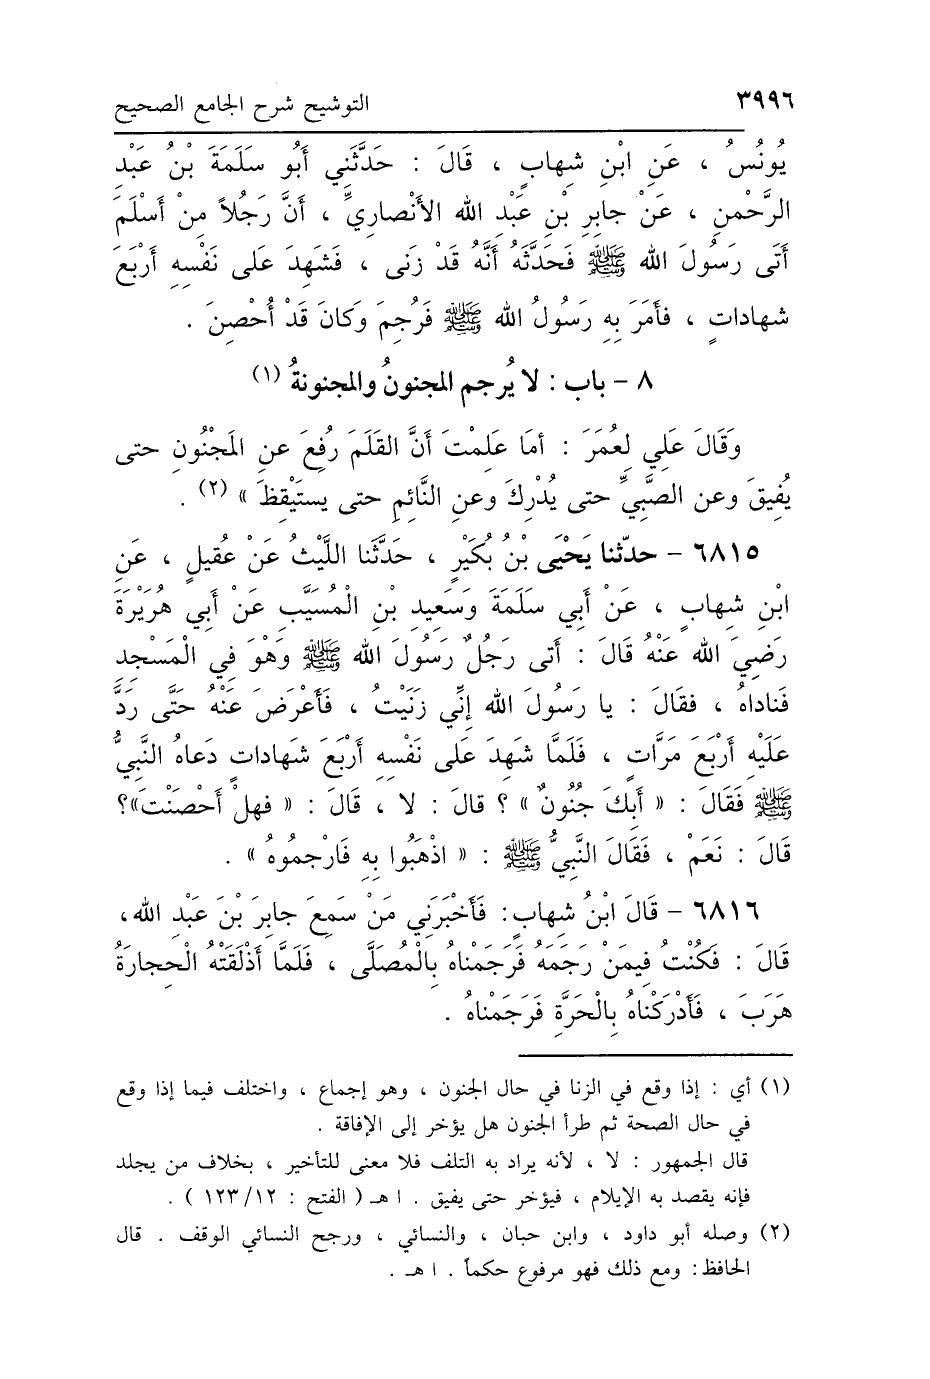 ٣٩٩٦ التوشيح شرح الجامع الصحيح
يُونُسُ ، عَنِ ابْنِ شِهابٍ ، قَالَ : حَدَّثَنِي أَبُو سَلَمَةَ بْنُ عَبْدِ
الرَّحْمنِ ، عَنْ جابِرِ بْنِ عَبْدِ الله الأَنْصارِيِّ ، أَنَّ رَجُلاً مِنْ أَسْلَمَ
أَتَى رَسُولَ الله ﷺ فَحَدَّثَهُ أَنَّهُ قَدْ زَنَى ، فَشَهِدَ عَلَى نَفْسِهِ أَرْبَعَ
شهاداتٍ ، فأَمَرَ بِهِ رَسُولُ الله ﷺ فَرُجِمَ وَكَانَ قَدْ أُحْصِنَ .
٨ – باب : لا يُرجم المجنونُ والمجنونةُ (١)
وَقَالَ عَلِي لِعُمَرَ : أمَا عَلِمْتَ أَنَّ القَلَمَ رُفِعَ عنِ المَجْنُونِ حتى
يُفِيقَ وعن الصَّبِيِّ حتى يُدْرِكَ وعنِ النَّائِمِ حتى يستَيْقِظَ » (٢) .
٦٨١٥ – حدّثنا يَحْيَى بْنُ بُكَيْرٍ ، حَدَّثَنا اللَّيْثُ عَنْ عُقيلٍ ، عَنِ
ابْنِ شِهابٍ ، عَنْ أَبِي سَلَمَةَ وَسَعِيدِ بْنِ الْمُسَيَّبِ عَنْ أَبِي هُرَيْرَةَ
رَضِيَ الله عَنْهُ قَالَ : أَتى رَجُلٌ رَسُولَ الله ﷺ وَهْوَ فِي الْمَسْجِدِ
فَناداهُ ، فقَالَ : يا رَسُولَ الله إِنِّي زَنَيْتُ ، فَأَعْرَضَ عَنْهُ حَتَّى رَدَّ
عَلَيْهِ أَرْبَعَ مَرَّاتٍ ، فَلَمَّا شَهِدَ عَلَى نَفْسِهِ أَرْبَعَ شَهاداتٍ دَعاهُ النَّبِيُّ
ﷺ فَقَالَ : « أَبِكَ جُنُونٌ » ؟ قالَ : لا ، قَالَ : « فهلْ أَحْصَنْتَ»؟
قَالَ : نَعَمْ ، فَقَالَ النَّبِيُّ ﷺ : « اذْهَبُوا بِهِ فَارْجُمُوهُ » .
٦٨١٦ – قَالَ ابْنُ شِهابٍ: فَأَخْبَرَنِي مَنْ سَمِعَ جابِرَ بْنَ عَبْدِ الله،
قَالَ : فَكُنْتُ فِيمَنْ رَجَمَهُ فَرَجَمْناهُ بِالْمُصَلَّى ، فَلَمَّا أَذْلَقَتْهُ الْحِجارَةُ
هَرَبَ ، فَأَدْرَكْناهُ بِالْحَرَّةِ فَرَجَمْناهُ .
(١) أي : إذا وقع في الزنا في حال الجنون ، وهو إجماع ، واختلف فيما إذا وقع
في حال الصحة ثم طرأ الجنون هل يؤخر إلى الإفاقة .
قال الجمهور : لا ، لأنه يراد به التلف فلا معنى للتأخير ، بخلاف من يجلد
فإنه يقصد به الإيلام ، فيؤخر حتى يفيق . ا هـ ( الفتح : ١٢٣/١٢ ) .
(٢) وصله أبو داود ، وابن حبان ، والنسائي ، ورجح النسائي الوقف . قال
الحافظ: ومع ذلك فهو مرفوع حكماً . ا هـ .